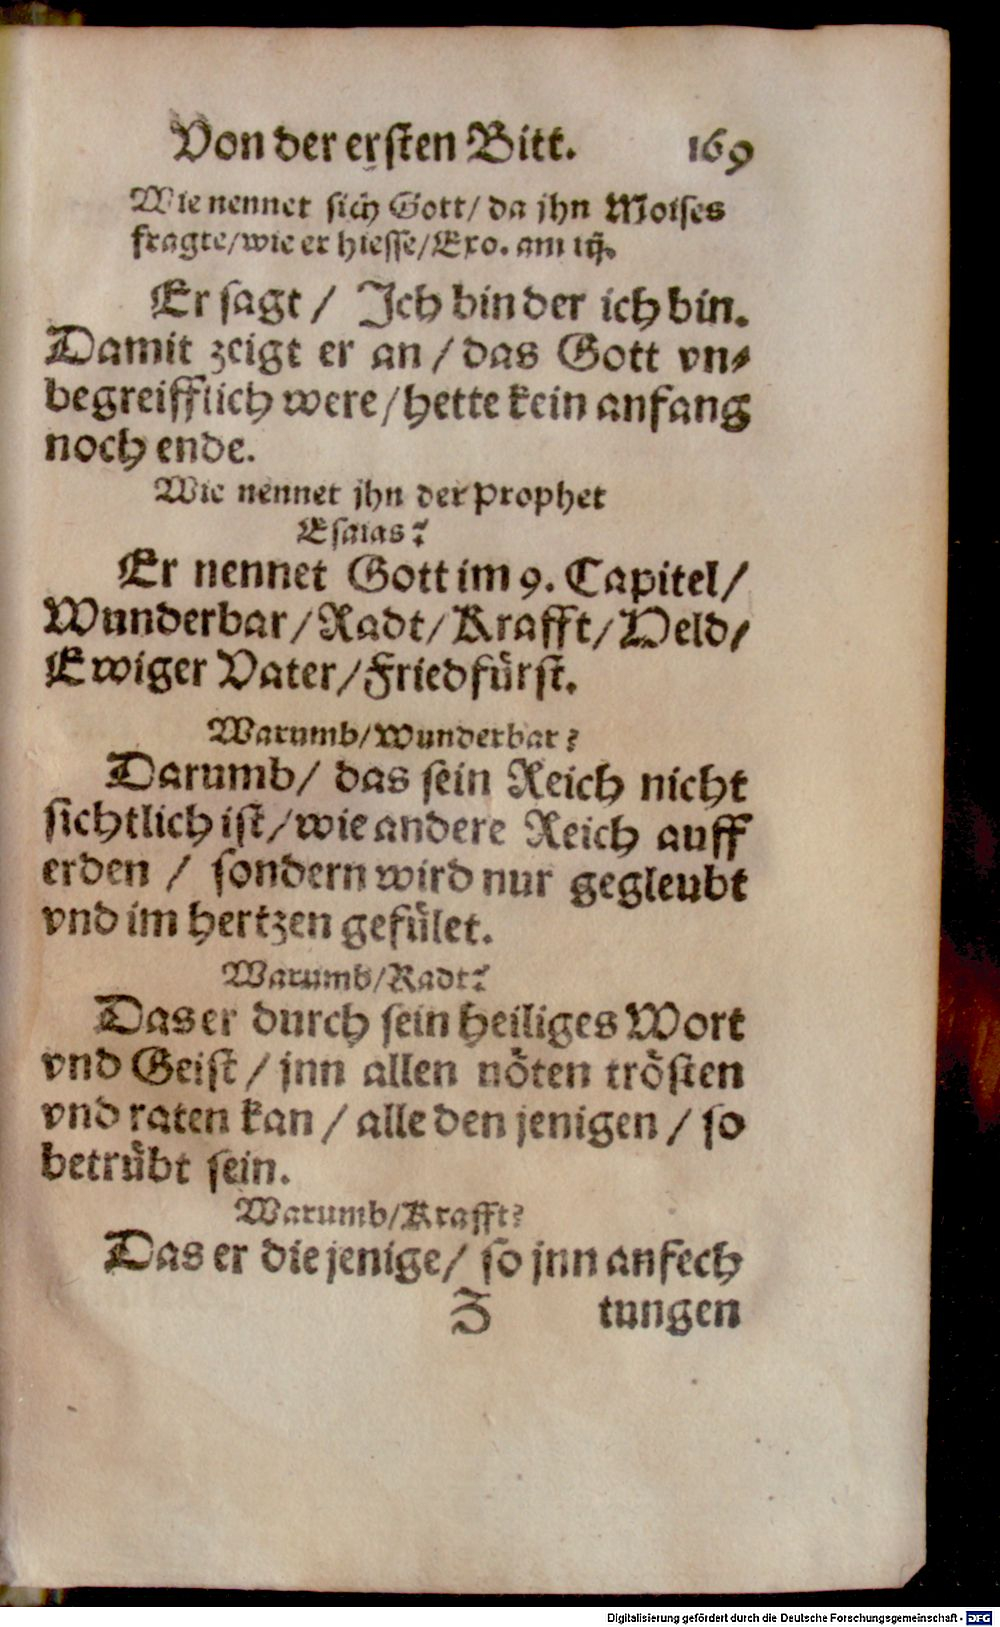 Von der ersten Bitt. 169
Wie nennet sich Gott/ da jhn Moises
fragte/wie er hiesse/Exo. am iij.
Er sagt / Ich bin der ich bin.
Damit zeigt er an / das Gott vn⸗
begreifflich were/hette kein anfang
noch ende.
Wie nennet jhn der Prophet
Esaias?
Er nennet Gott im 9. Capitel/
Wunderbar/Radt/Krafft/Held/
Ewiger Vater/Friedfürst.
Warumb/Wunderbar?
Darumb/ das sein Reich nicht
sichtlich ist/wie andere Reich auff
erden / sondern wird nur gegleubt
vnd im hertzen gefület.
Warumb/Radt?
Das er durch sein heiliges Wort
vnd Geist / jnn allen nöten trösten
vnd raten kan / alle den jenigen / so
betrübt sein.
Warumb/Krafft?
Das er die jenige/ so jnn anfech
Z tungen
Digitalisierung gefördert durch die Deutsche Forschungsgemeinschaft - DFG